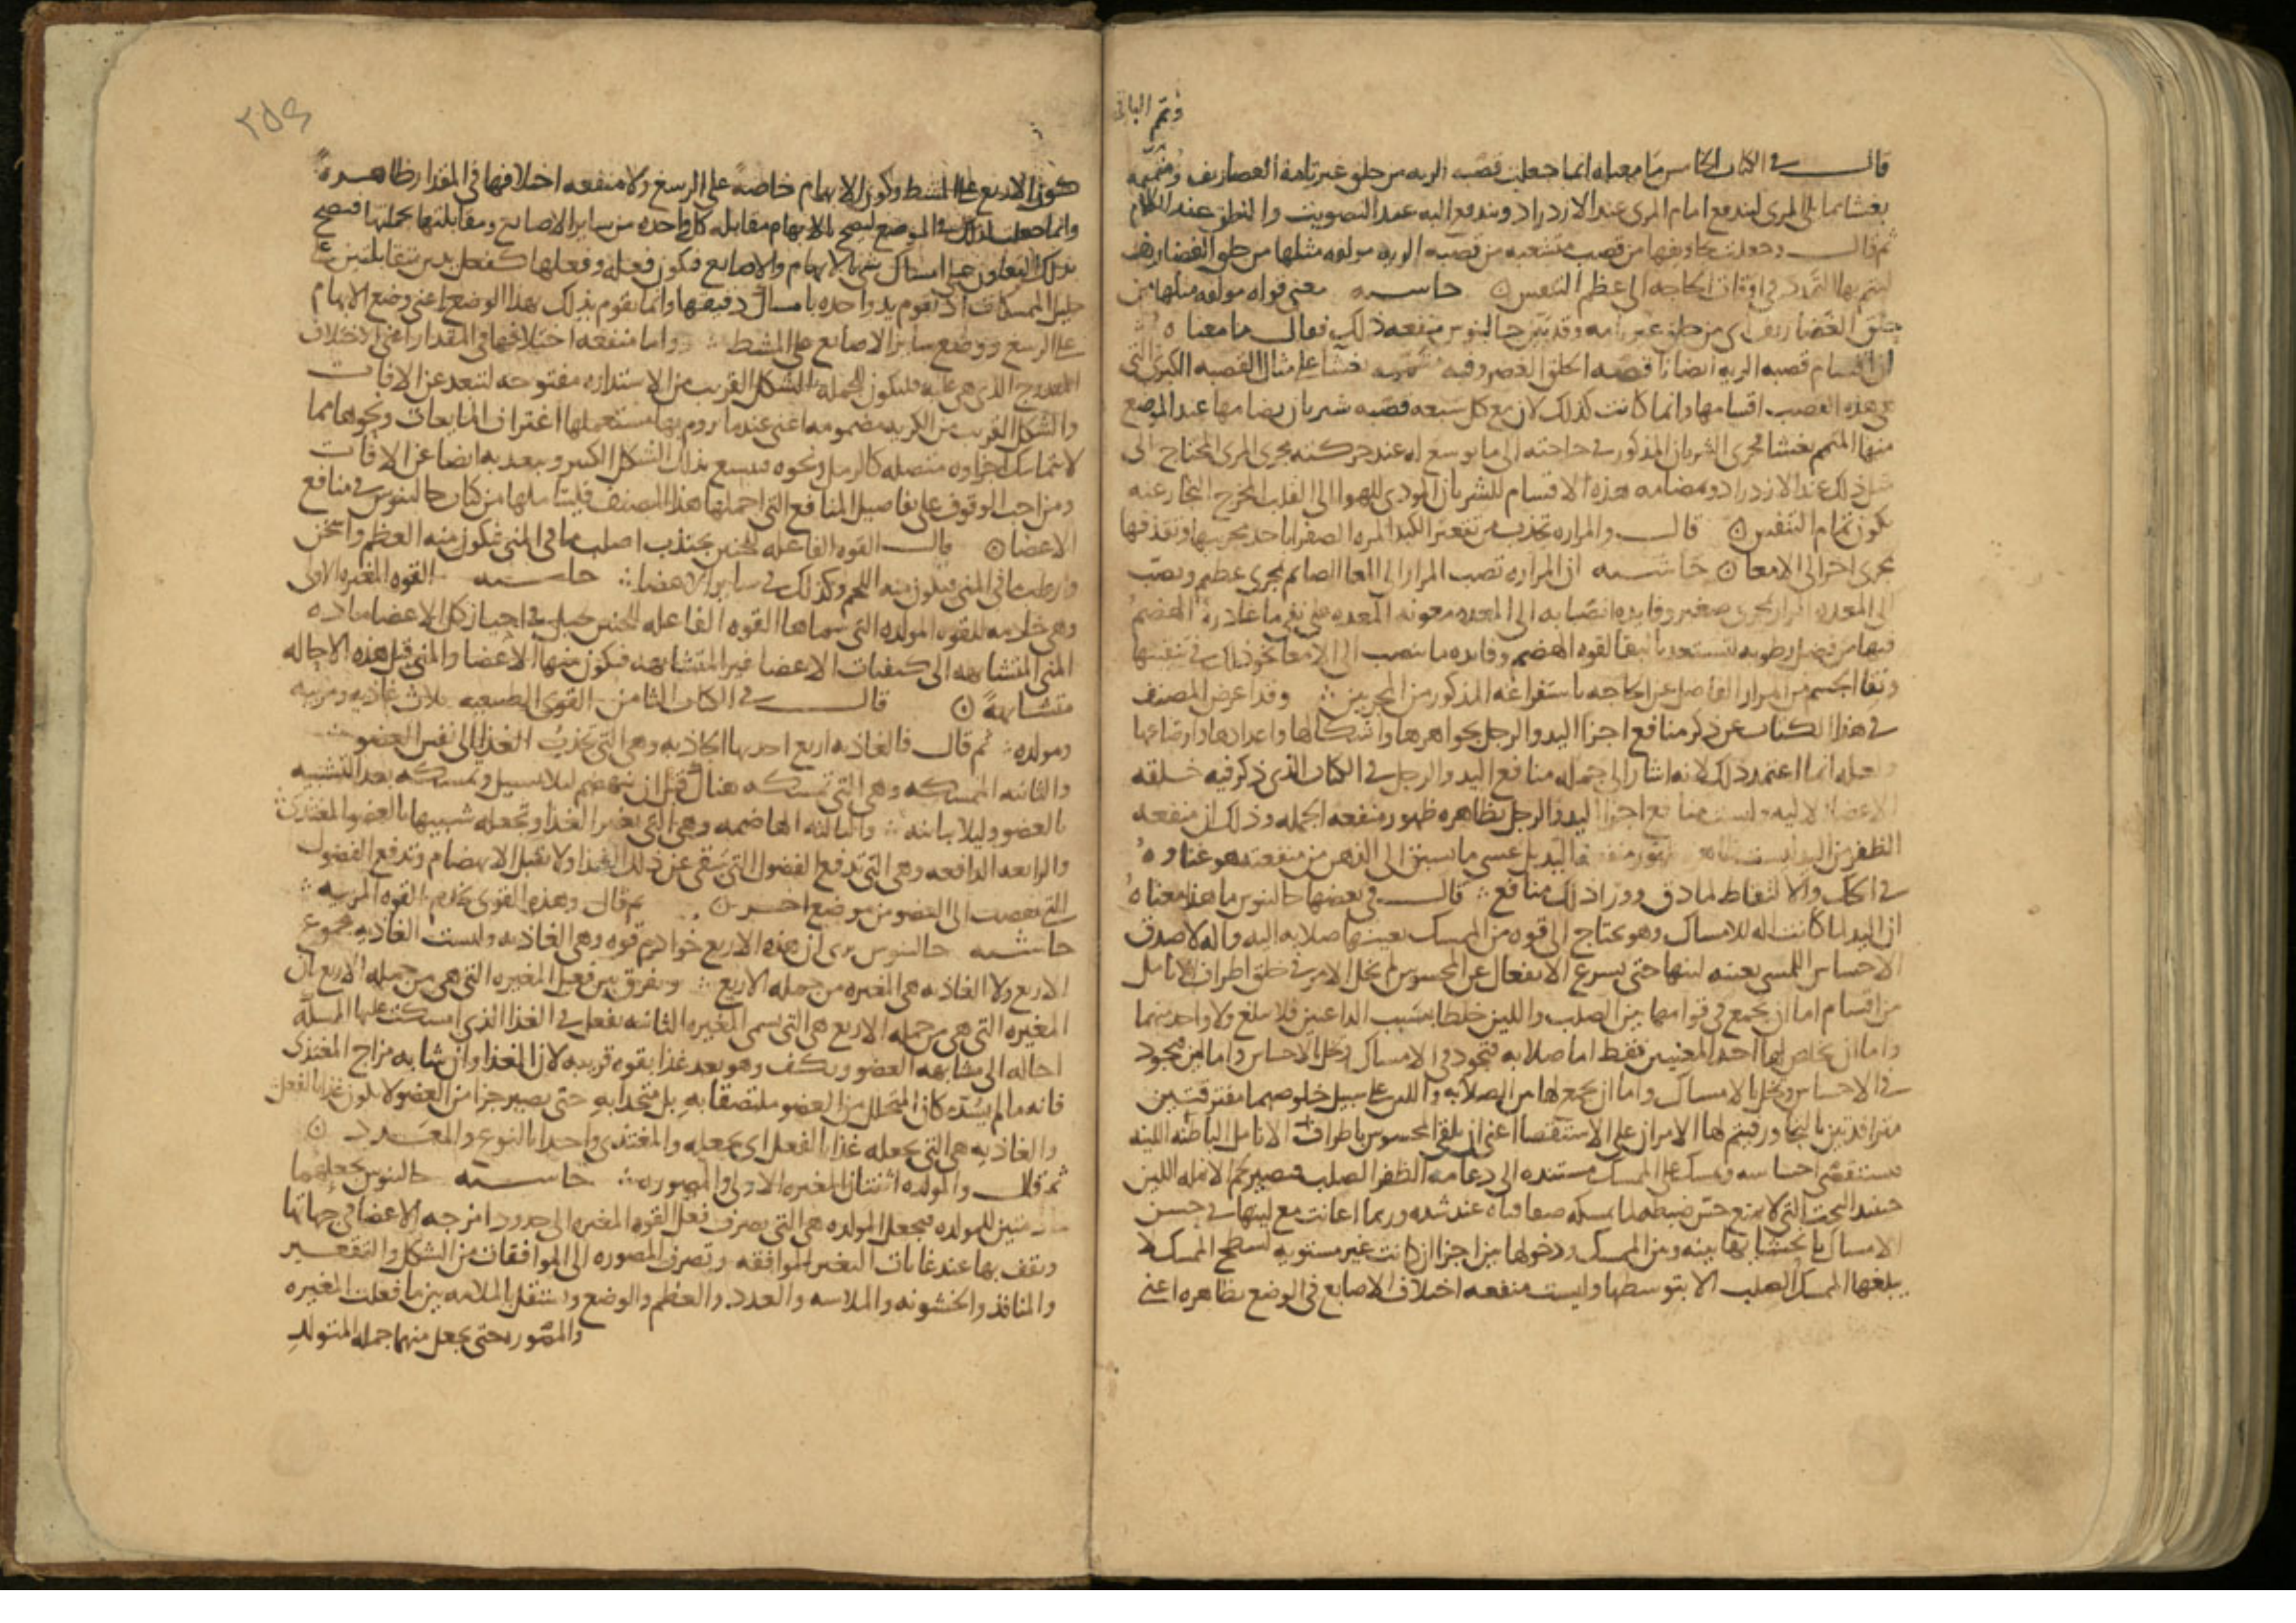 وتمم الباقي
قال في الكتاب الخامس ما معناه انما جعلت قصبه الريه من حلق غير تامة الغضاريف ومتممه
بغشا مما يلى المرى ليندفع امام المرى عند الازدراد ويندفع اليه عند التصويت والنطق عند الكلام
ثم قال وجعلت تجاويفها من قصب متشعبه من قصبه الريه مولفه مثلها من حلق الغضاريف
ليتم بها في اوقات الحاجه الى عظم التنفس حاشيه معنى قوله مولفه مثلها من
حلق الغضاريف اى من حلق غير تامه وقد بين جالينوس منفعه ذلك فقال ما معناه
ان اقسام قصبه الريه ايضا ناقصه الحلق وفيه متممه بغشا على مثال القصبه الكبرى التى
هذه القصب اقسامها وانما كانت كذلك لان مع كل شعبه قصبه شريان يضامها عند الموضع
منها المتمم بغشا مجرى الشريان المذكور في حاجته الى ما يوسع له عند حركته مجرى المرى المحتاج الى
مثل ذلك عند الازدراد ومضامه هذه الاقسام للشريان المودى للهوا الى القلب المخرج البخار عنه
يكون تمام التنفس قال والمراره تجذب من تقعير الكبد المره الصفرا باحد مجريها وتقذفها
بمجرى اخر الى الامعا حاشيه ان المراره تصب المرار الى المعا الصايم بمجرى عظيم وتصب
الى المعده المرار بمجرى صغير وفايده انصبابه الى المعده معونه المعده على ما غادره الهضم
فيها من فضل رطوبه لتستعد بالنقا لقوه الهضم وفايده ما ينصب الى الامعا نحو ذلك في تنقيتها
ونقا الجسم من المرار الفاضل عن الحاجه باستفراغه المذكور من المجريين وقد اعرض المصنف
في هذا الكتاب عن ذكر منافع اجزا اليد والرجل بجواهرها واشكالها واعدادها واوضاعها
ولعله انما اعتمد ذلك لانه اشار الى جمله منافع اليد والرجل في الكتاب الذى ذكر فيه خلقه
الاعضا الاليه وليست منافع اجزا اليد والرجل بظاهره ظهور منفعه الجمله وذلك ان منفعه
الظفر من اليد ليست ظاهره ظهور منفعه اليد بل عسى ما يسبق الى الذهن من منفعته هو غناوه
في الحك والالتقاط لما دق وورا ذلك منافع قال في بعضها جالينوس ما هذا معناه
ان اليد لما كانت اله للامساك وهو يحتاج الى قوه من الممسك يعينها صلابه اليه واله لاصدق
الاحساس اللمسى بعينه لينها حتى يسرع الانفعال عن المحسوس لم يخل الامر في خلق اطراف الانامل
من اقسام اما ان يجمع في قوامها بين الصلب واللين خلطا بسبب الداعيين فلا يبلغ ولا واحد منهما
واما ان يخلص لها احد المعنيين فقط اما صلابه فتجود في الامساك وتخل بالاحساس واما لين فتجود
في الاحساس وتخل بالامساك واما ان يجمع لها من الصلابه واللين على سبيل خلوصهما مفترقتين
مترافدتين بالتجاور فيتم لها الامران على الاستقصا اعنى ان يلقى المحسوس باطراف الانامل الباطنه اللينه
فيستقصى احساسه وتمسك على الممسك مستنده الى دعامه الظفر الصلب فيصير لحم الانمله اللين
حينئذ تحت التى لا يمنع حسن ضبطها لما تمسكه ضعفاه عند شده وربما اعانت مع لينها في حسن
الامساك بانحشايها بينه وبين الممسك ودخولها بين اجزا ان كانت غير مستويه لسطح الممسك لا
يبلغها الممسك الصلب الا بتوسطها وليست منفعه اختلاف الاصابع في الوضع بظاهره اعنى
٢٥٤
كون الاربع على المشط وكون الابهام خاصة على الرسغ ولا منفعه اختلافها في المقدار ظاهره
وانما جعلت كذلك في الموضع ليصح بالابهام مقابله كل واحده من ساير الاصابع ومقابلتها بجملتها فيصح
بذلك التعاون على امساك شى بالابهام والاصابع فيكون فعله وفعلها كفعل يدين متقابلتين على
جليل الممسكات اذ تقوم يد واحده بامساك دقيقها وانما يقوم بذلك بهذا الوضع اعنى وضع الابهام
على الرسغ ووضع ساير الاصابع على المشط واما منفعه اختلافها في المقدار اعنى الاختلاف
المدرج الذى هى عليه فليكون للجمله الشكل القريب من الاستداره مفتوحه لتبعد عن الافات
والشكل القريب من الكريه مضمومه اعنى عندما يروم بها مستعملها اغتراف المايعات ونحوها مما
لا تتماسك اجزاوه متصله كالرمل ونحوه فيسع بذلك الشكل الكثير ويبعد به ايضا عن الافات
ومن احب الوقوف على تفاصيل المنافع التى اجملها هذا المصنف فليتاملها من كتاب جالينوس في منافع
الاعضا قال القوه الفاعله للجنين يجتذب اصلب ما في المنى فيكون منه العظم واسخن
وارطب ما في المنى فيكون منه اللحم وكذلك في ساير الاعضا حاشيه القوه المغيره الاولى
وهى خادمه للقوه المولده التى سماها القوه الفاعله للجنين تحيل في احياز كل الاعضا ماده
المنى المتشابهه الى كيفيات الاعضا غير المتشابهه فيكون منها الاعضا والمنى قبل هذه الاحاله
متشابهة قال في الكتاب الثامن القوى الطبيعيه ثلاث غاذيه ومربيه
ومولده ثم قال فالغاذيه اربع احديها الجاذبه وهى التى تجذب الغذا الى نفس العضو
والثانيه الممسكه وهى التى تمسكه هناك قبل ان ينهضم ليلا يسيل وتمسكه بعد التشبيه
بالعضو ليلا يباينه والثالثه الهاضمه وهى التى تغير الغذا وتجعله شبيها بالعضو المغتذى
والرابعه الدافعه وهى التى تدفع الفضول التى تبقى عن ذلك الغذا ولا تقبل الانهضام وتدفع الفضول
التى تنصب الى العضو من موضع اخر ثم قال وهذه القوى خادم القوه المربيه
حاشيه جالينوس يرى ان هذه الاربع خوادم قوه وهى الغاذيه وليست الغاذيه مجموع
الاربع ولا الغاذيه هى المغيره من جمله الاربع ويفرق بين فعل المغيره التى هى من جمله الاربع ان
المغيره التى هى من جمله الاربع هى التى تسمى المغيره الثانيه تفعل في الغذا الذى امسكت عليها الممسكه
احاله الى مشابهه العضو ويكف وهو بعد غذا بقوه قريبه لان الغذا وان شابه مزاج المغتذى
فانه ما لم يسد مكان المتحلل من العضو ملتصقا به بل متحدا به حتى يصير جزا من العضو لا يكون غذا بالفعل
والغاذيه هى التى تجعله غذا بالفعل اى تجعله والمغتذى واحدا بالنوع والعدد
ثم قال والمولده اثنتان المغيره الاولى والمصوره حاشيه جالينوس يجعلهما
خادمتين للمولده فيجعل المولده هى التى تصرف فعل القوه المغيره الى حدود امزجه الاعضا في جهاتها
وتقف بها عند غايات التغير الموافقه وتصرف المصوره الى الموافقات من الشكل والتقعير
والمنافذ والخشونه والملاسه والعدد والعظم والوضع وتستقل بالملايمه بين ما فعلت المغيره
والمصوره حتى يجعل منهما جمله المتولد